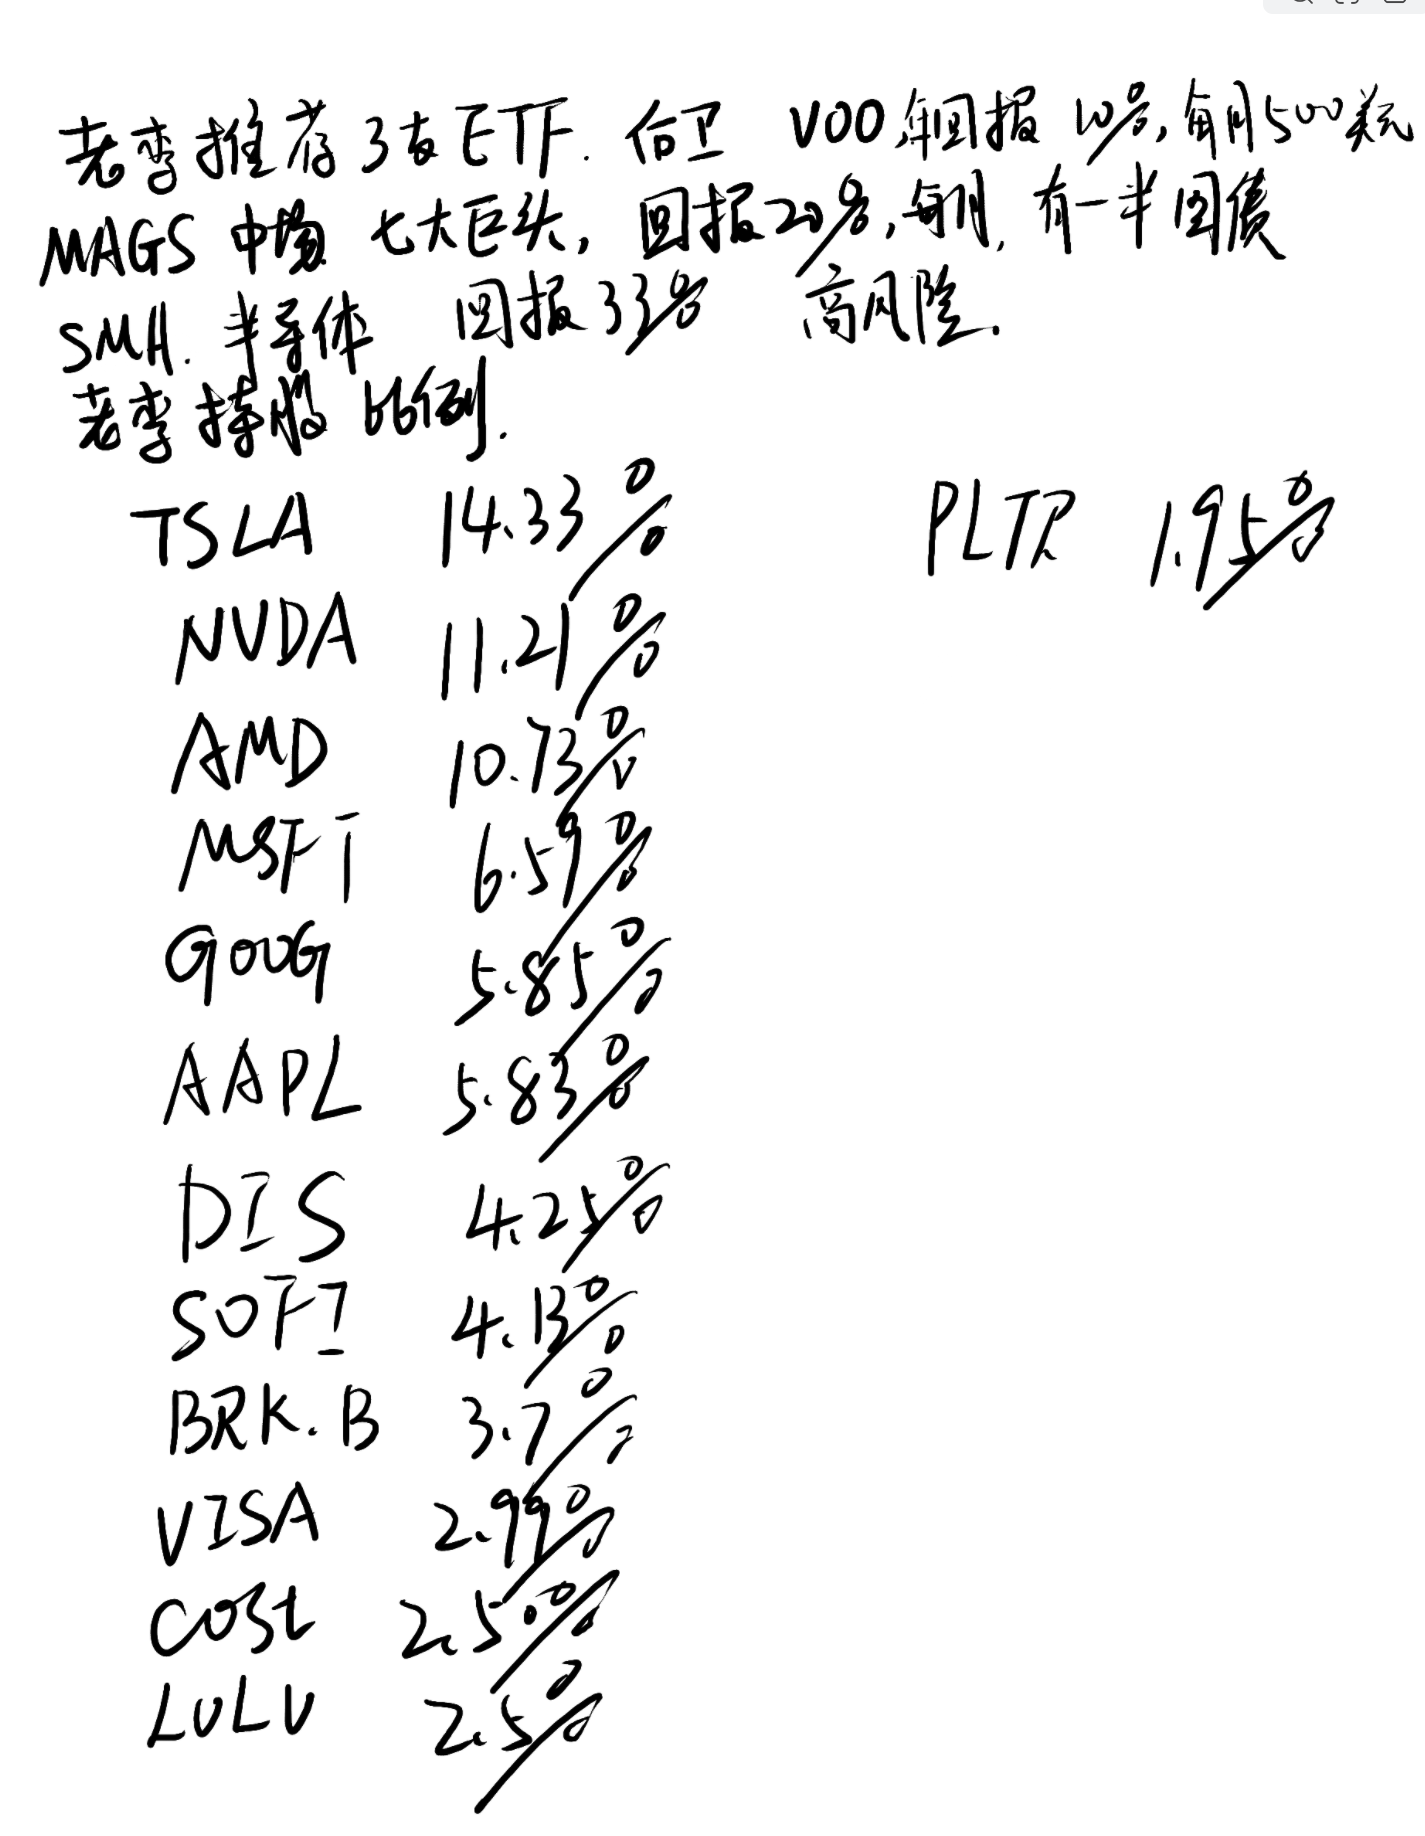 老李推荐3支ETF. 后卫 VOO 年回报 10%, 每月500美元
MAGS 中场 七大巨头, 回报20%, 每月, 有一半国债
SMH. 半导体 回报33% 高风险.
老李持股比例.
TSLA 14.33% PLTR 1.95%
NVDA 11.21%
AMD 10.73%
MSFT 6.59%
GOOG 5.85%
AAPL 5.83%
DIS 4.25%
SOFI 4.13%
BRK.B 3.7%
VISA 2.99%
COST 2.50%
LULU 2.5%